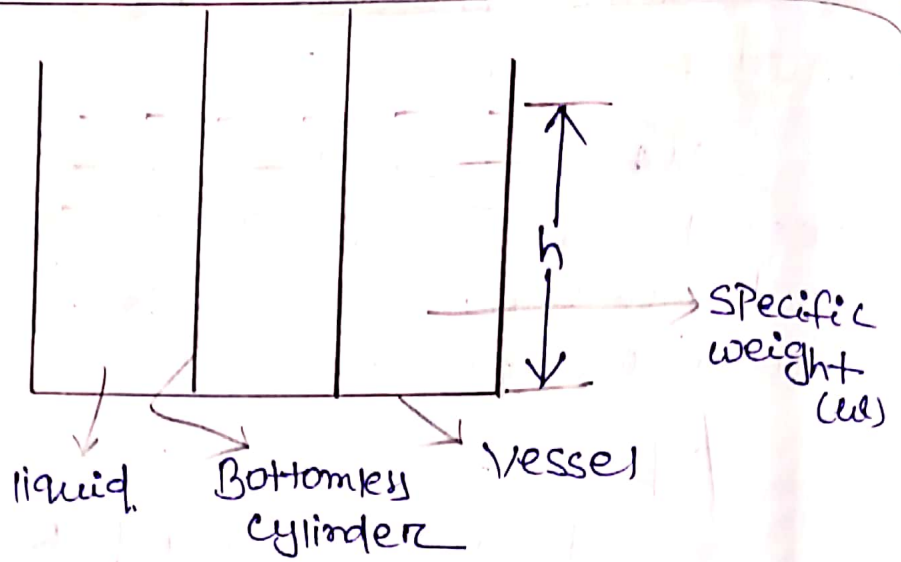 h
Specific
weight
(w)
liquid.
Bottomless
cylinder
Vessel